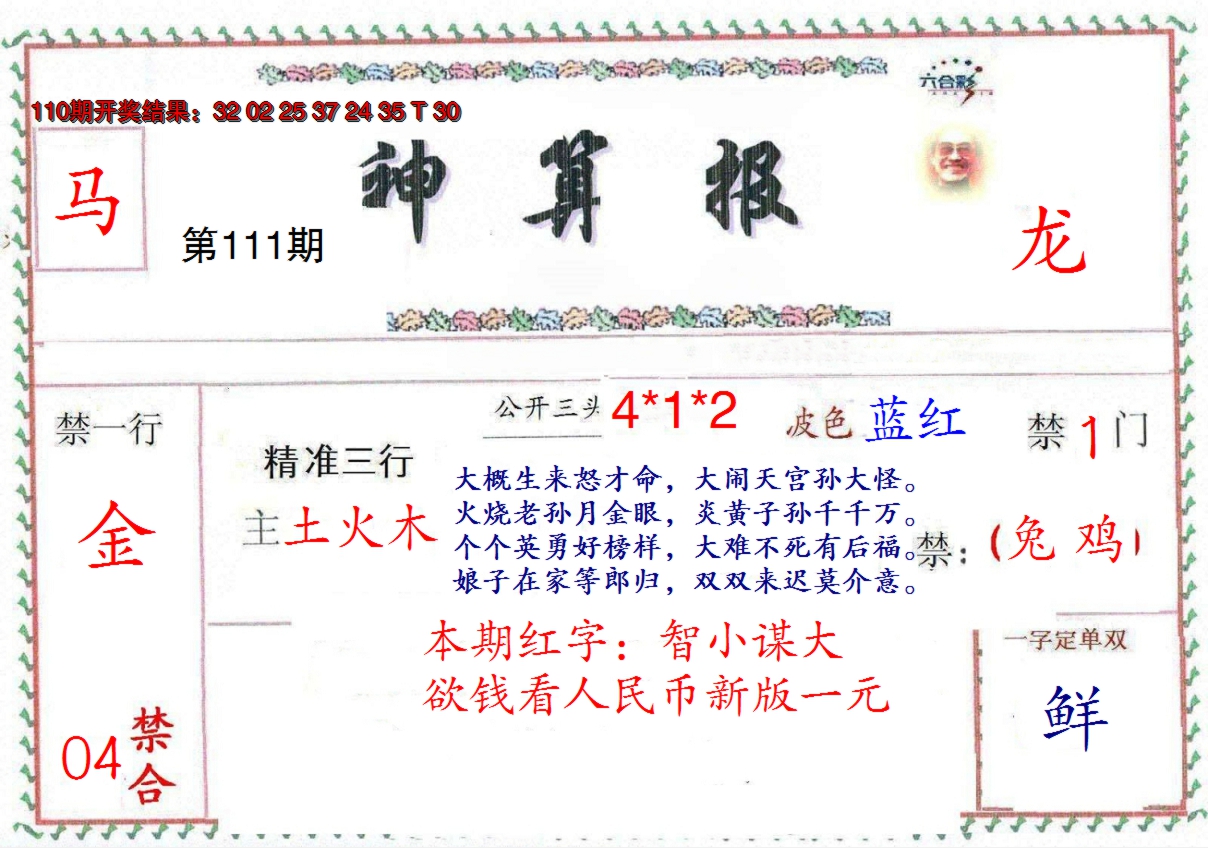 六合彩
110期开奖结果：32 02 25 37 24 35 T 30
马
神算报
第111期
龙
公开三头 4*1*2
波色 蓝红
禁一行
禁1门
精准三行
主土火木
金
大概生来怒才命，大闹天宫孙大怪。
火烧老孙月金眼，炎黄子孙千千万。
个个英勇好榜样，大难不死有后福。
娘子在家等郎归，双双来迟莫介意。
禁：（兔 鸡）
本期红字：智小谋大
欲钱看人民币新版一元
一字定单双
鲜
04 禁合